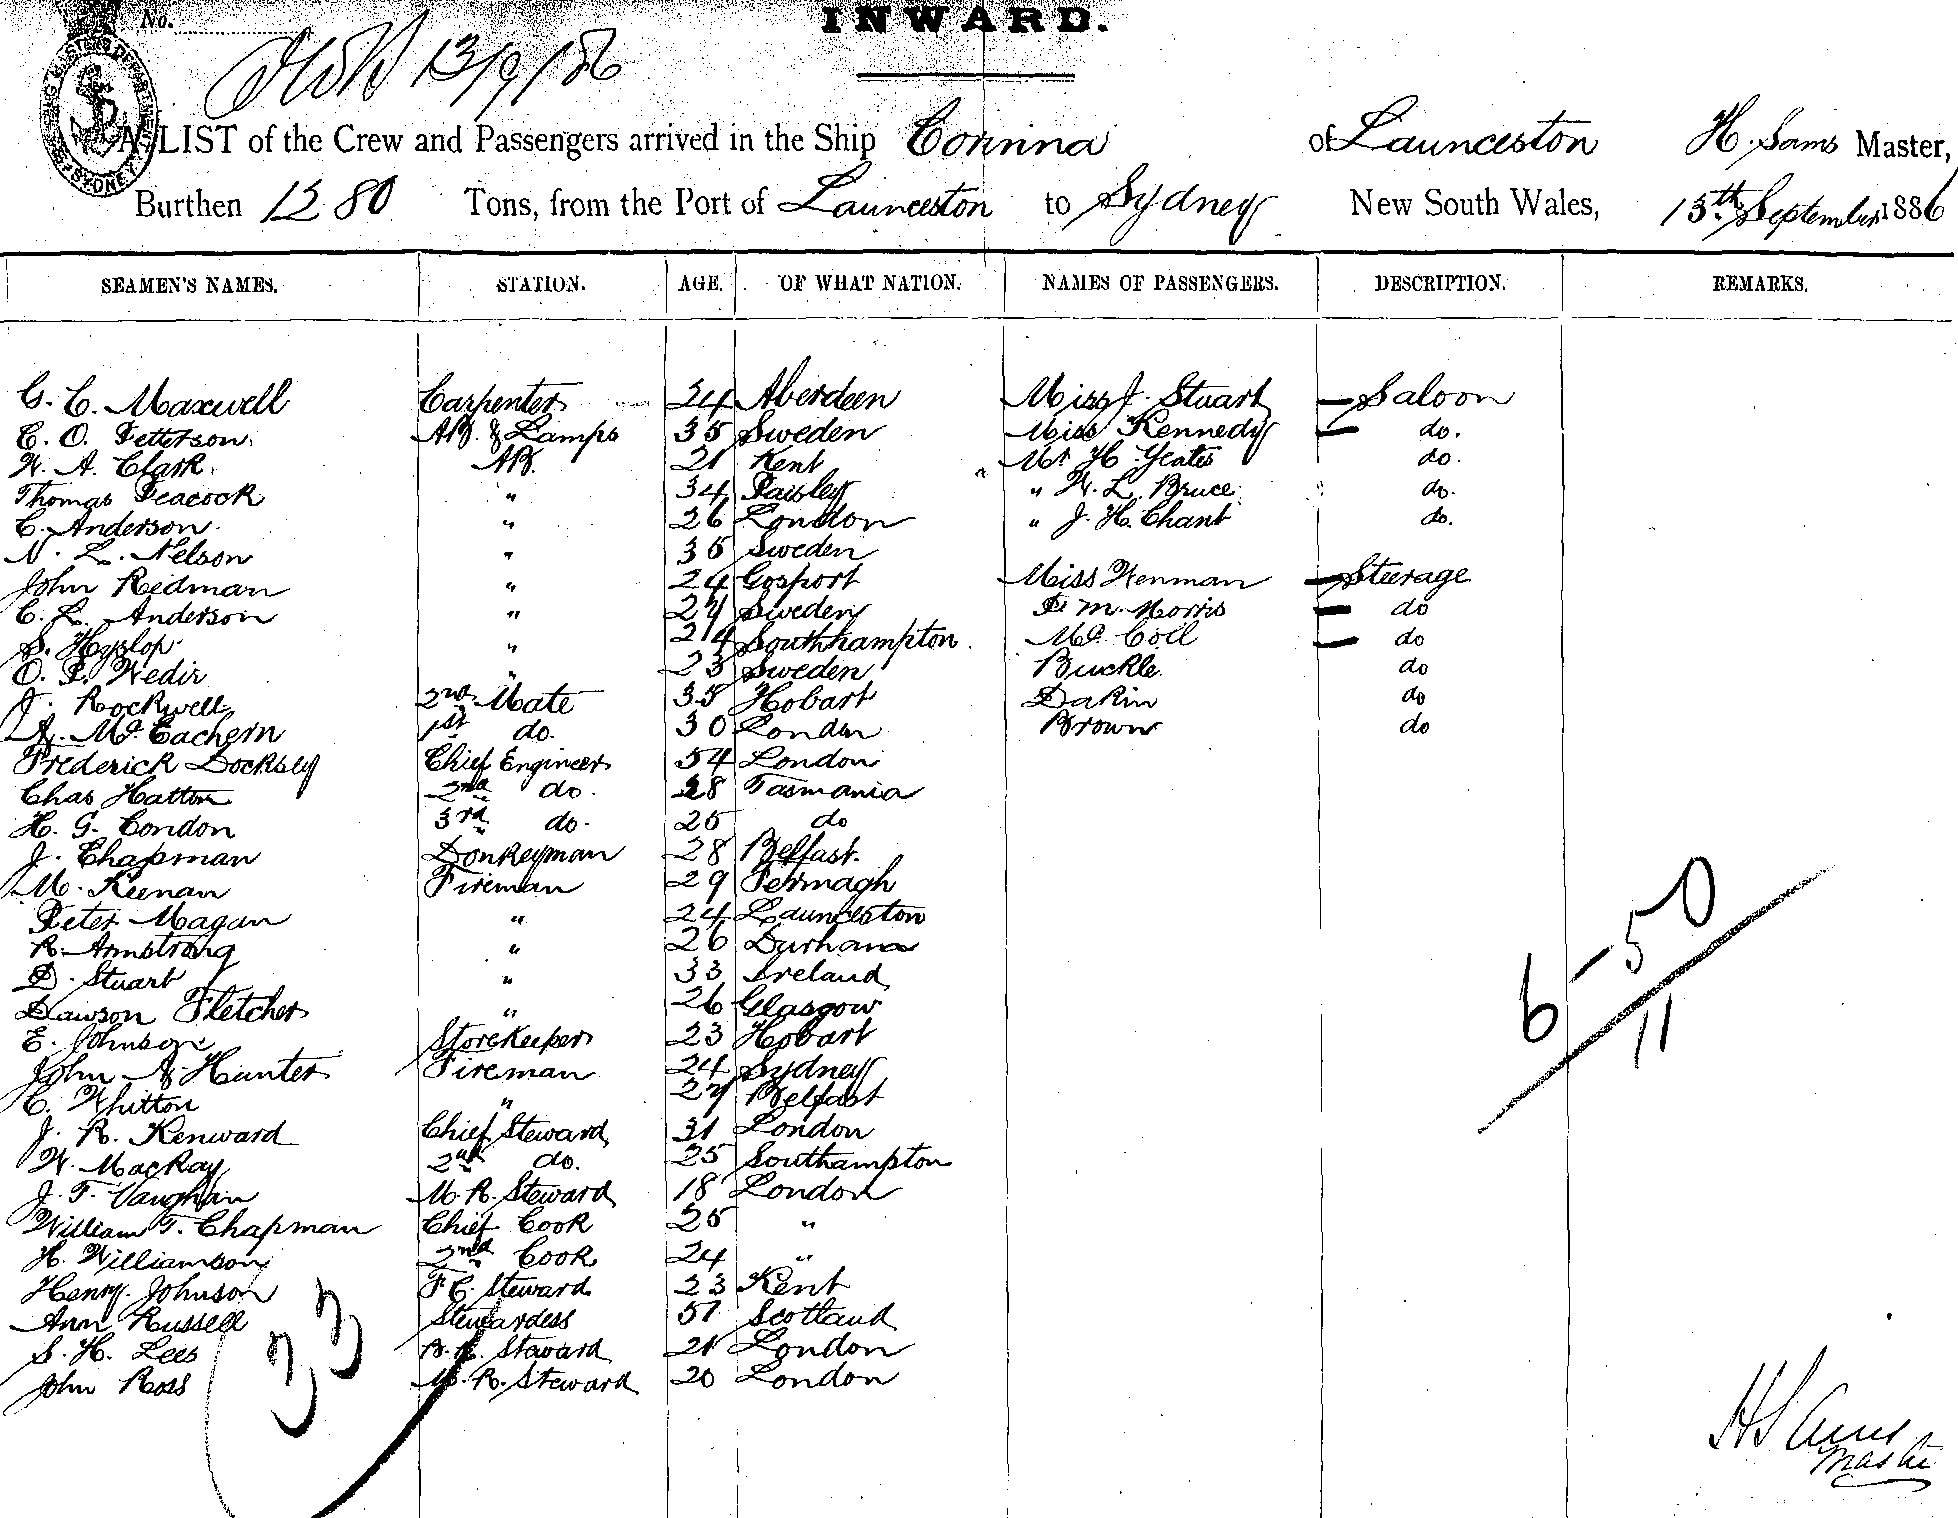 No.
INWARD.
13/9/86
A LIST of the Crew and Passengers arrived in the Ship Corinna of Launceston H. Sams Master,
Burthen 1280 Tons, from the Port of Launceston to Sydney New South Wales, 13th September 1886
SEAMEN'S NAMES. STATION. AGE. OF WHAT NATION. NAMES OF PASSENGERS. DESCRIPTION. REMARKS.
G. C. Maxwell Carpenter 24 Aberdeen Miss J. Stuart — Saloon
C. O. Petterson AB. & Lamps 35 Sweden Miss Kennedy — do.
W. A. Clark AB. 21 Kent Mr H. Yeates do.
Thomas Peacock " 34 Paisley " W. L. Bruce do.
C. Anderson " 26 London " J. H. Chant do.
N. L. Nelson " 35 Sweden
John Redman " 24 Gosport Miss Wenman — Steerage
C. L. Anderson " 27 Sweden F. M. Morris — do
S. Hyslop " 24 Southhampton Mc Coll — do
O. P. Wedir " 23 Sweden Buckle do
J. Rockwell 2nd Mate 35 Hobart Dakin do
A. McEachern 1st do. 30 London Brown do
Frederick Docksey Chief Engineer 54 London
Chas Hatton 2nd do. 28 Tasmania
H. G. Condon 3rd do. 25 do
J. Chapman Donkeyman 28 Belfast.
M. Keenan Fireman 29 Fermagh
Peter Magan " 24 Launceston
R. Armstrong " 26 Durham
D. Stuart " 33 Ireland
Dawson Fletcher " 26 Glasgow
E. Johnson Storekeeper 23 Hobart
John A. Hunter Fireman 24 Sydney
C. Whitton " 27 Belfast
J. R. Kenward Chief Steward 31 London
W. Mackay 2nd do. 25 Southampton
J. T. Vaughan M. R. Steward 18 London
William T. Chapman Chief Cook 25 "
H. Williamson 2nd Cook 24 "
Henry Johnson F. C. Steward 23 Kent
Ann Russell Stewardess 57 Scotland
S. H. Lees B. R. Steward 21 London
John Ross M. R. Steward 20 London
33
6-50
11
H Sams
Master